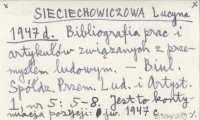 SIECIECHOWICZOWA Lucyna
1947 d. Bibliografia prac i
artykułów związanych z prze-
mysłem ludowym. — Biul.
Spółdz. Przem. Lud. i Artyst.
1, nr 5: 5-8. Jest to konty-
nuacja pozycji: jw. 1947